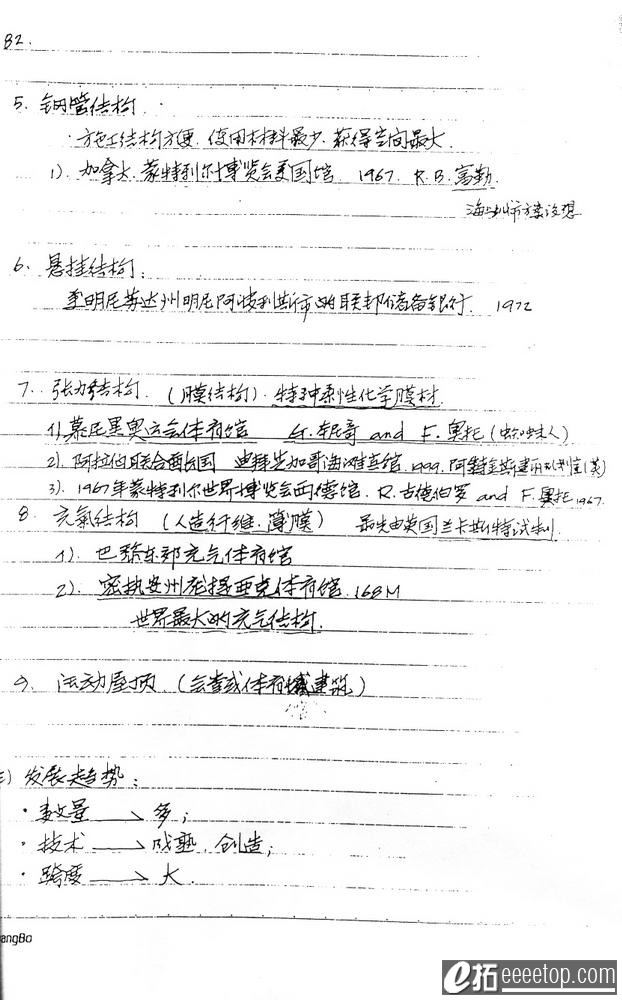 82.
5. 钢管结构.
·施工结构方便. 使用材料最少. 获得空间最大.
1). 加拿大.蒙特利尔博览会美国馆. 1967. R.B.富勒.
6. 悬挂结构:
美明尼苏达州明尼阿波利斯市的联邦储备银行. 1972
7. 张力结构. (膜结构). 特种柔性化学膜材.
1).慕尼黑奥运会体育馆 and F.奥托(蜘蛛人)
2). 阿拉伯联合酋长国 迪拜芝加哥海滩宾馆. 1999.
3). 1967年蒙特利尔世界博览会西德馆. R.古德伯罗 and F.奥托.1967.
8. 充氧结构 (人造纤维.薄膜) 最先由英国兰卡斯特试制.
1). 巴 充气体育馆
2). 密执安州庞提亚克体育馆. 168M
世界最大的充气结构.
9. 活动屋顶. (会堂或体育 建筑)
) 发展趋势:
·数量 → 多;
·技术 → 成熟. 创造;
·跨度 → 大.
angBo
e拓 eeeetop.com